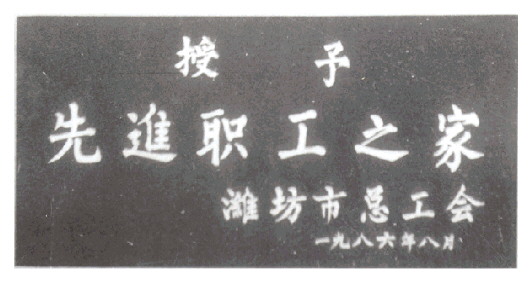 授予
先進职工之家
潍坊市总工会
一九八六年八月